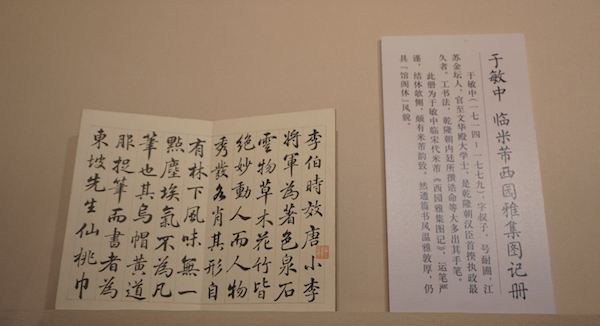 于敏中 临米芾西园雅集图记册
于敏中(一七一四—一七七九),字叔子,号耐圃,江
苏金坛人,官至文华殿大学士,是乾隆朝汉臣首揆执政最
久者。工书法,乾隆朝内廷所撰诰命等大多出其手笔。
此册为于敏中临宋代米芾《西园雅集图记》,运笔严
谨,结体欹侧,颇有米芾韵致。然通篇书风温雅敦厚,仍
具“馆阁体”风貌。
李伯時效唐小李
將軍為著色泉石
雲物草木花竹皆
絕妙動人而人物
秀發各肖其形自
有林下風味無一
點塵埃氣不為凡
筆也其烏帽黃道
服捉筆而書者為
東坡先生仙桃巾